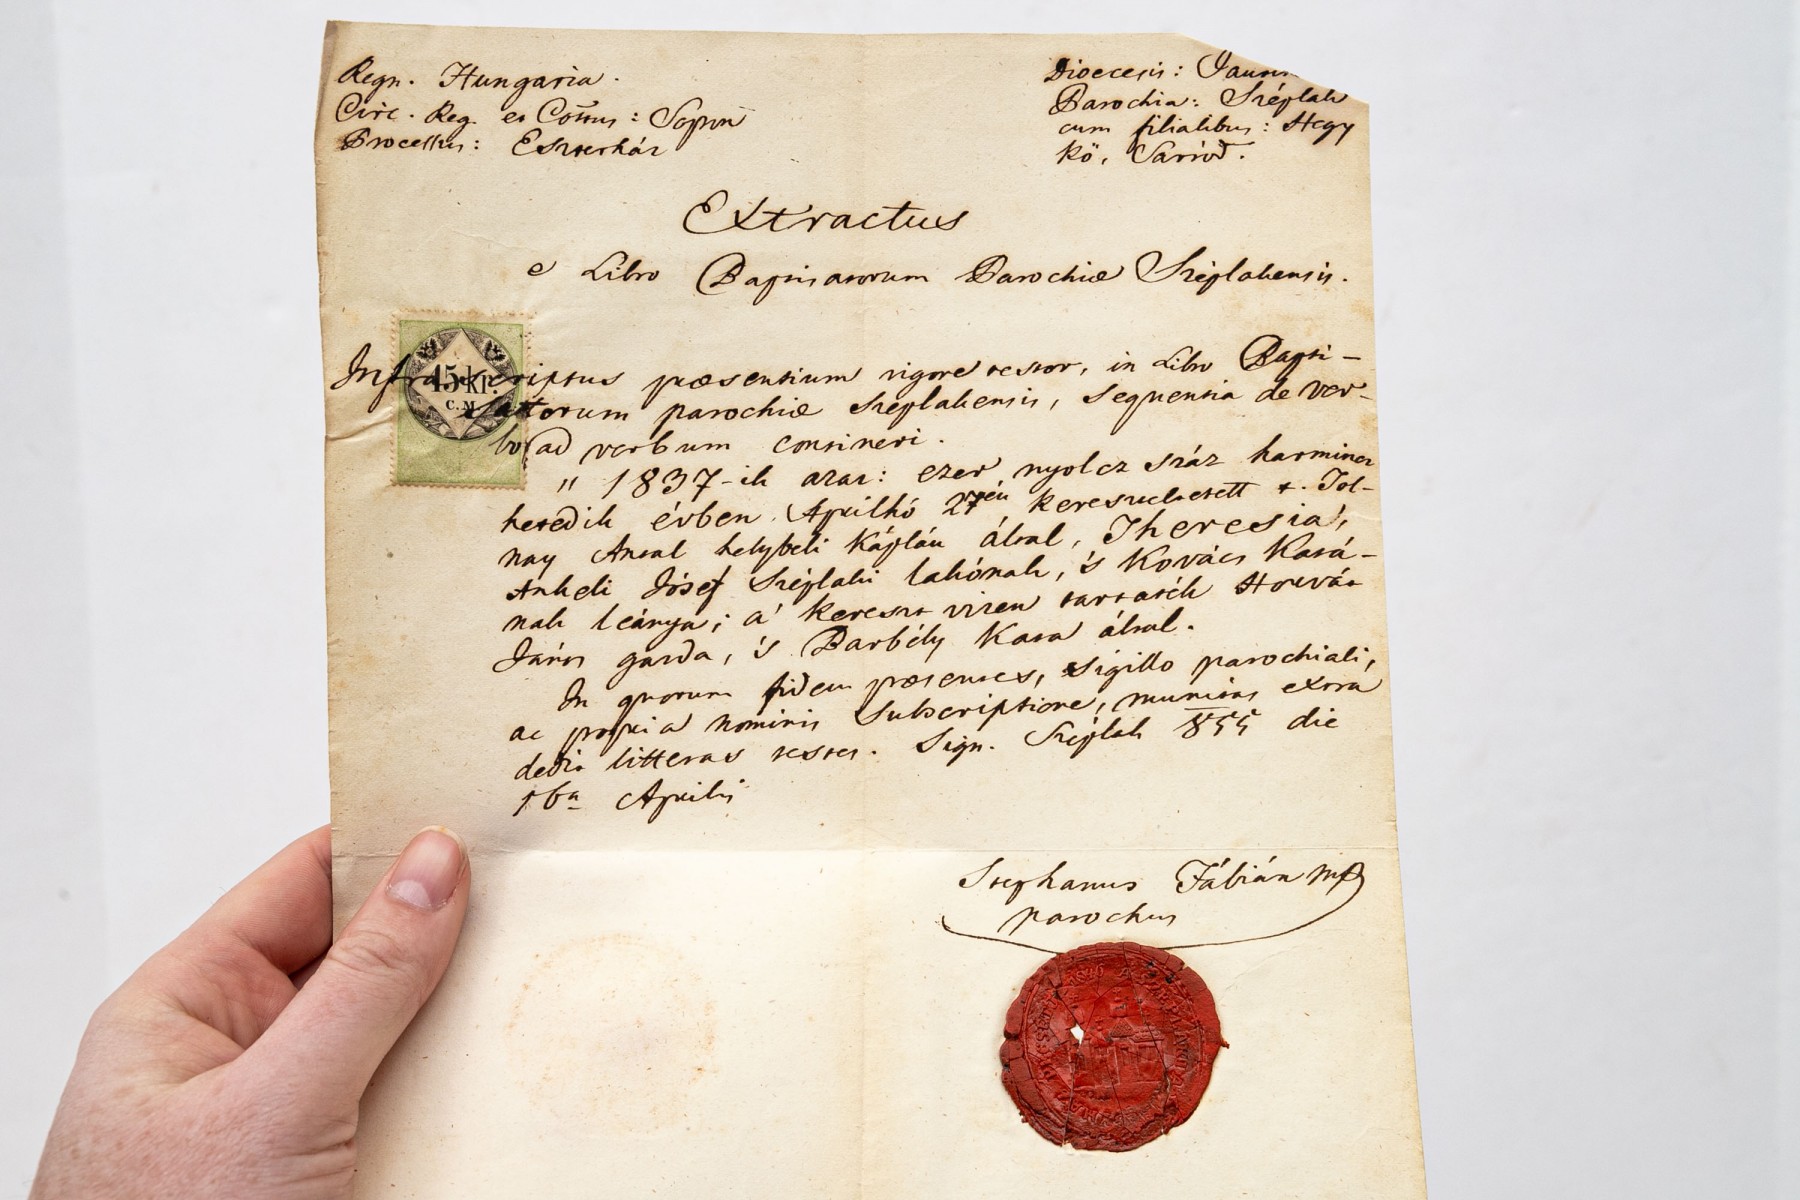 Regn. Hungaria.
Circ. Reg. et Cottus: Sopron
Processus: Eszterház
Dioecesis: Jaurin
Parochia: Széplak
cum filialibus: Hegy
kö, Sarród.
Extractus
e Libro Baptisatorum Parochiæ Széplakensis.
Infrascriptus præsentium vigore testor, in Libro Bapti-
satorum parochiæ Széplakensis, sequentia de ver-
bo ad verbum contineri.
15 kr.
C.M.
„ 1837-ik azaz: ezer nyolcz száz harmincz
hetedik évben Aprilhó 27én kereszteltetett t. Tol-
nay Antal helybeli Káplán által, Theresia,
Ankeli Jósef Széplaki lakónak, 's Kovács Katá-
nak leánya; a' kereszt vizen tartaték Horvát
János gazda, 's Barbély Kata által.
In quorum fidem præsentes, sigillo parochiali,
ac propria nominis subscriptione, munitas extra
dedi litteras testes. Sign. Széplak 855 die
16a Aprilis
Stephanus Fábián mp
parochus